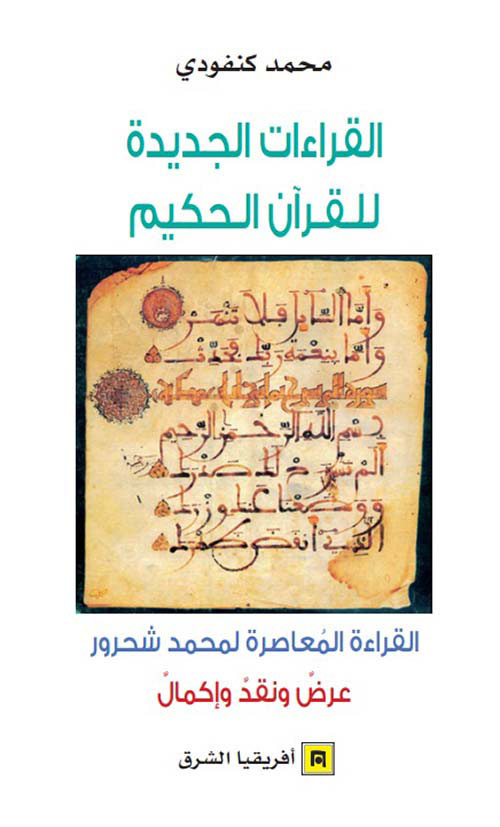 محمد كنفودي
القراءات الجديدة
للقرآن الحكيم
وَأَمَّا السَّائِلَ فَلَا تَنْهَرْ
وَأَمَّا بِنِعْمَةِ رَبِّكَ فَحَدِّثْ
بسم الله الرحمن الرحيم
ألم نشرح لك صدرك
ووضعنا عنك وزرك
الذي أنقض ظهرك
القراءة المُعاصرة لمحمد شحرور
عرضٌ ونقدٌ وإكمالٌ
أفريقيا الشرق